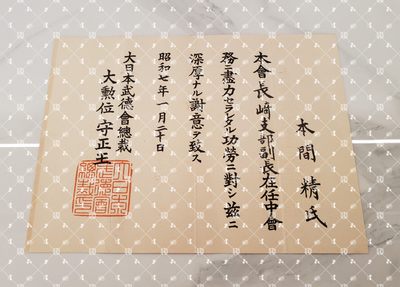 本間精氏
本會長崎支部副長在任中會
務ニ盡力セラレタル功勞ニ對シ茲ニ
深厚ナル謝意ヲ致ス
昭和七年一月二十日
大日本武德會總裁
大勲位守正王